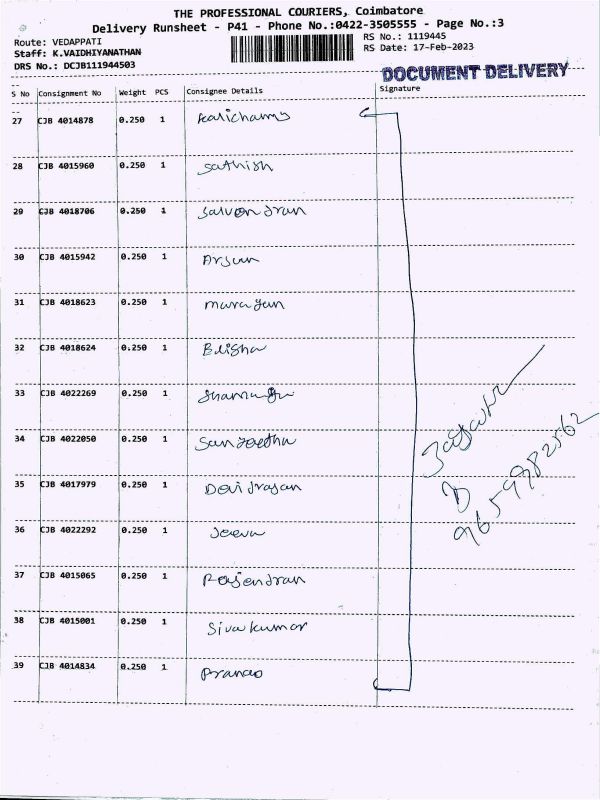 THE PROFESSIONAL COURIERS, Coimbatore
Delivery Runsheet - P41 - Phone No.:0422-3505555 - Page No.:3
Route: VEDAPPATI
Staff: K.VAIDHIYANATHAN
DRS No.: DCJB111944503
RS No.: 1119445
RS Date: 17-Feb-2023
DOCUMENT DELIVERY
S No Consignment No Weight PCS Consignee Details Signature
27 CJB 4014878 0.250 1 Kalichamy
28 CJB 4015960 0.250 1 Sathish
29 CJB 4018706 0.250 1
30 CJB 4015942 0.250 1 Arjun
31 CJB 4018623 0.250 1 murugan
32 CJB 4018624 0.250 1
33 CJB 4022269 0.250 1
34 CJB 4022050 0.250 1 Sangeetha
35 CJB 4017979 0.250 1 Devi
36 CJB 4022292 0.250 1 Jeeva
37 CJB 4015065 0.250 1 Rajendran
38 CJB 4015001 0.250 1 Sivakumar
39 CJB 4014834 0.250 1
9659982562